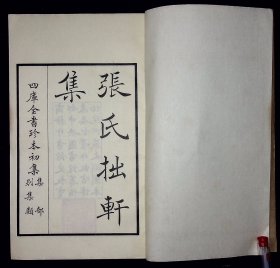 張氏拙軒
集
四庫全書珍本初集
集部
別集類